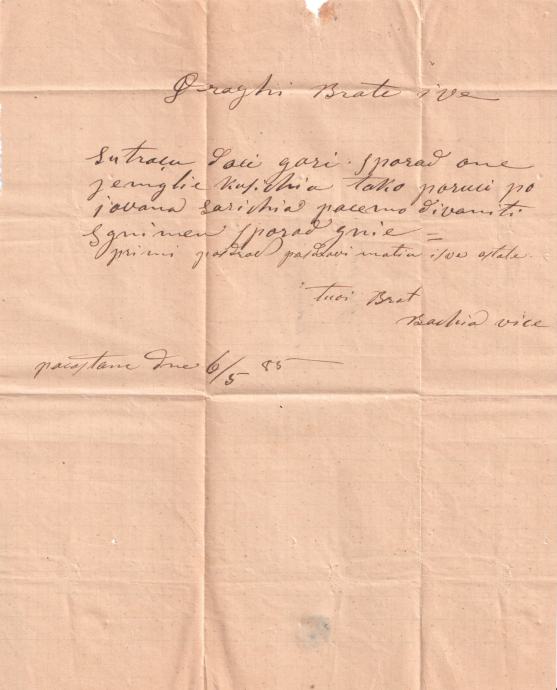 Draghi Brate ive
sutragu doci gori. sporad one
jemglie kusichia tako poruci po
jovana sarichia pacemo divaniti
sgnimen sporad gnie =
primi pozdrav matin isve ostale.
tvoi Brat
vice
dne 6/5 85